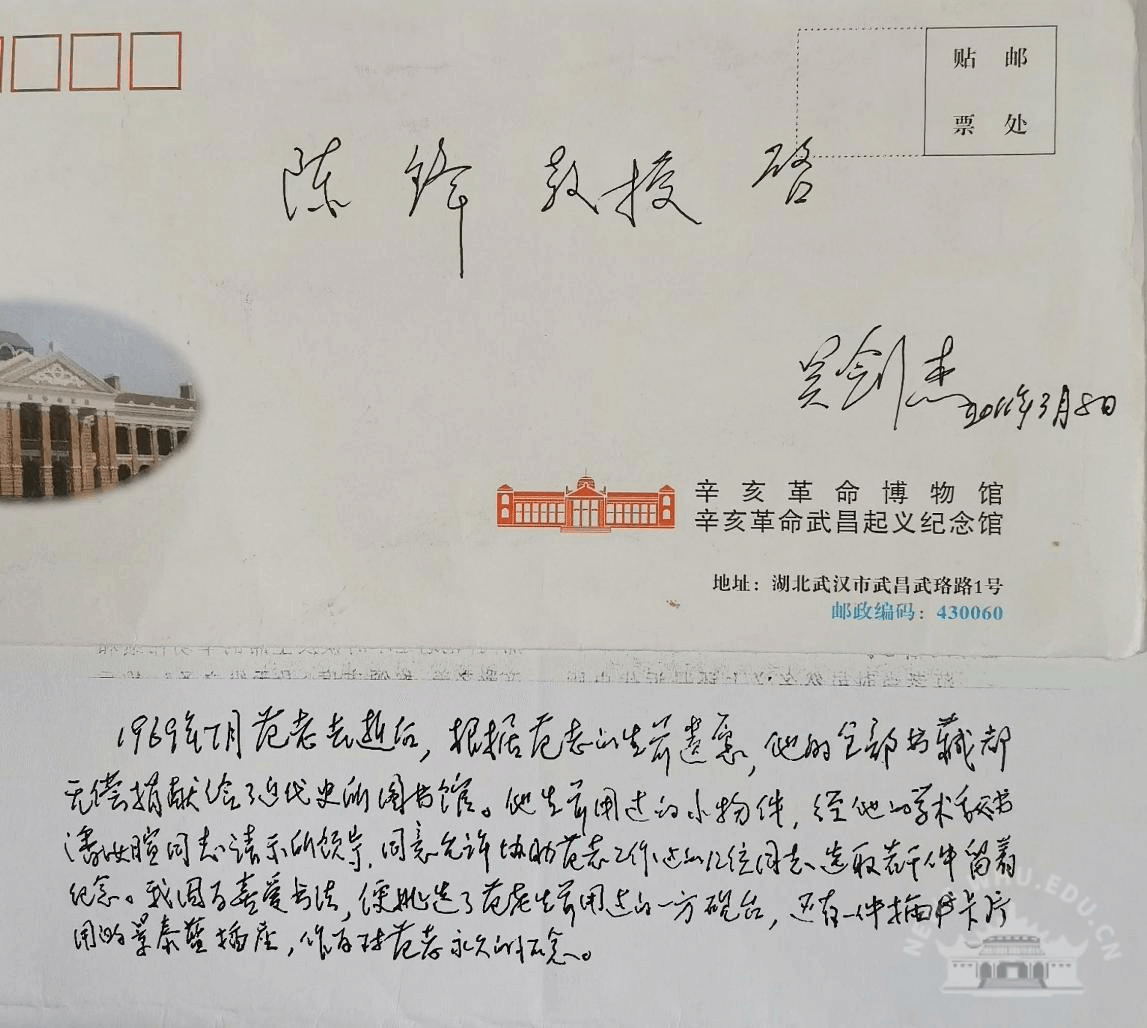 贴 邮
票 处
陈锋教授 启
吴剑杰
2011年3月8日
辛亥革命博物馆
辛亥革命武昌起义纪念馆
地址：湖北武汉市武昌武珞路1号
邮政编码：430060
1969年7月范老去逝后，根据范老的生前遗愿，他的全部书藏都
无偿捐献给了近代史所图书馆。他生前用过的小物件，经他的学术秘书
潘汝暄同志请示所领导，同意允许协助范老工作过的12位同志选取若干件留着
纪念。我因有喜爱书法，便挑选了范老生前用过的一方砚台，还有一件插卡片
用的景泰蓝插座，作为对范老永久的纪念。
NEWS.WHU.EDU.CN